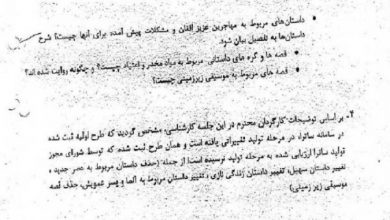 • داستان‌های مربوط به مهاجرین عزیز افغان و مشکلات پیش آمده برای آنها چیست؟ شرح
داستان‌ها به تفصیل بیان شود.
• قصه ها و گره های داستانی مربوط به مواد مخدر و اعتیاد چیست؟ و چگونه روایت شده اند؟
• قصه های مربوط به موسیقی زیرزمینی چیست؟
۴- بر اساس توضیحات کارگردان محترم در این جلسه کارشناسی، مشخص گردید که طرح اولیه ثبت شده
در سامانه ساترا، در مرحله تولید تغییراتی یافته است و همان طرح ثبت شده که توسط شورای مجوز
تولید ساترا ارزیابی شده به مرحله تولید نرسیده است؛ از جمله (حذف داستان مربوط به عصر جدید ،
تغییر داستان سهیل، تغییر داستان زندگی نازی ، تغییر داستان مربوط به آلما و پسر عمویش، حذف قصه
موسیقی زیر زمینی)